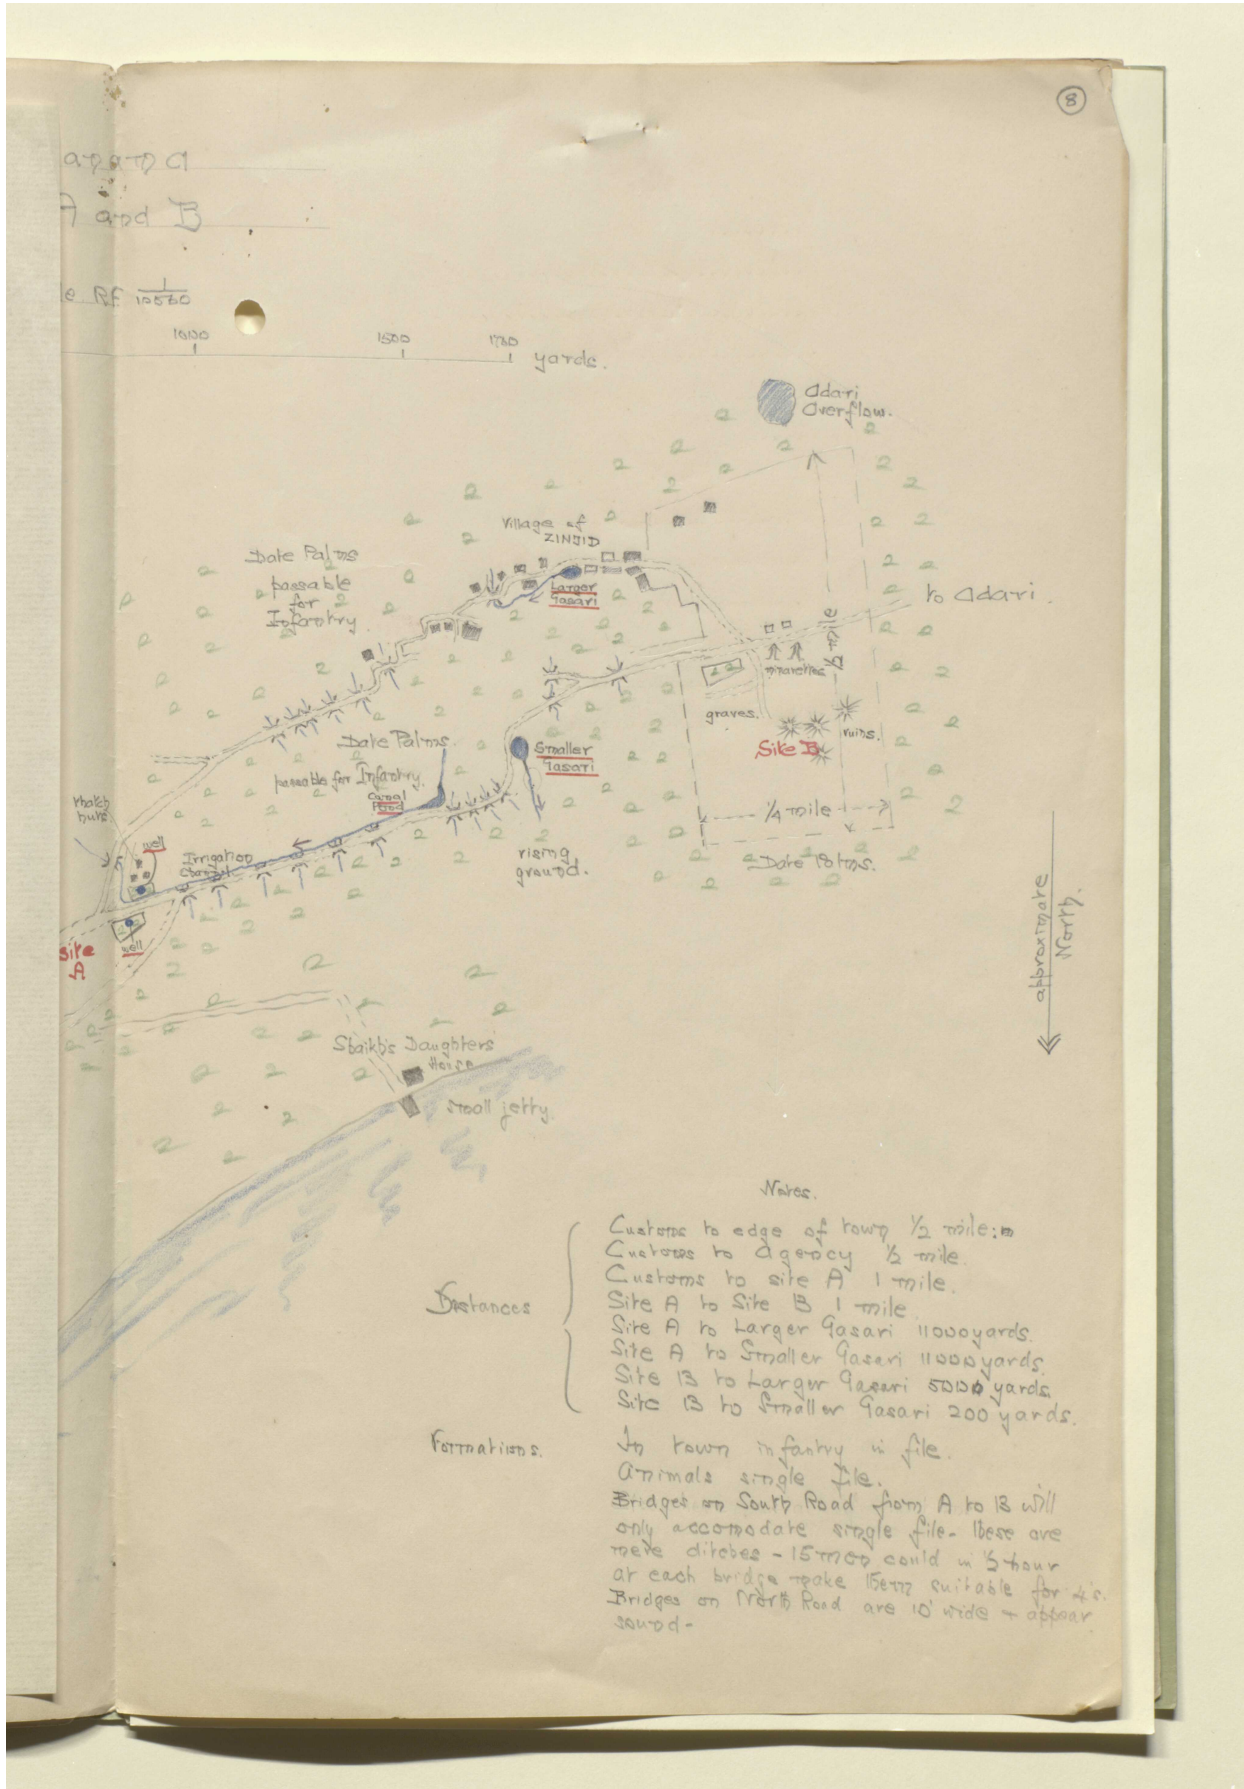 8
anama
A and B
le R.F. 1/10560
1000 1500 1760 yards.
Adari
Overflow.
Village of
ZINJID
Date Palms
passable
for
Infantry
Larger
Gasari
to Adari.
1/2 mile
minarettes
graves.
ruins.
Site B
Date Palms.
passable for Infantry
Canal
Smaller
Gasari
1/4 mile
Date Palms.
thatch
huts
well
Irrigation
Channel
rising
ground.
site
A
well
approximate
North.
Shaikh's Daughters'
House
small jetty.
Notes.
Distances
Customs to edge of town 1/2 mile:
Customs to Agency 1/2 mile.
Customs to site A 1 mile.
Site A to Site B 1 mile
Site A to Larger Gasari 11000 yards.
Site A to Smaller Gasari 11000 yards.
Site B to Larger Gasari 5000 yards.
Site B to Smaller Gasari 200 yards.
Formations.
In town infantry in file.
Animals single file.
Bridges on South Road from A to B will
only accomodate single file - these are
mere ditches - 15 men could in 1/2 hour
at each bridge make them suitable for 4's.
Bridges on North Road are 10' wide + appear
sound -